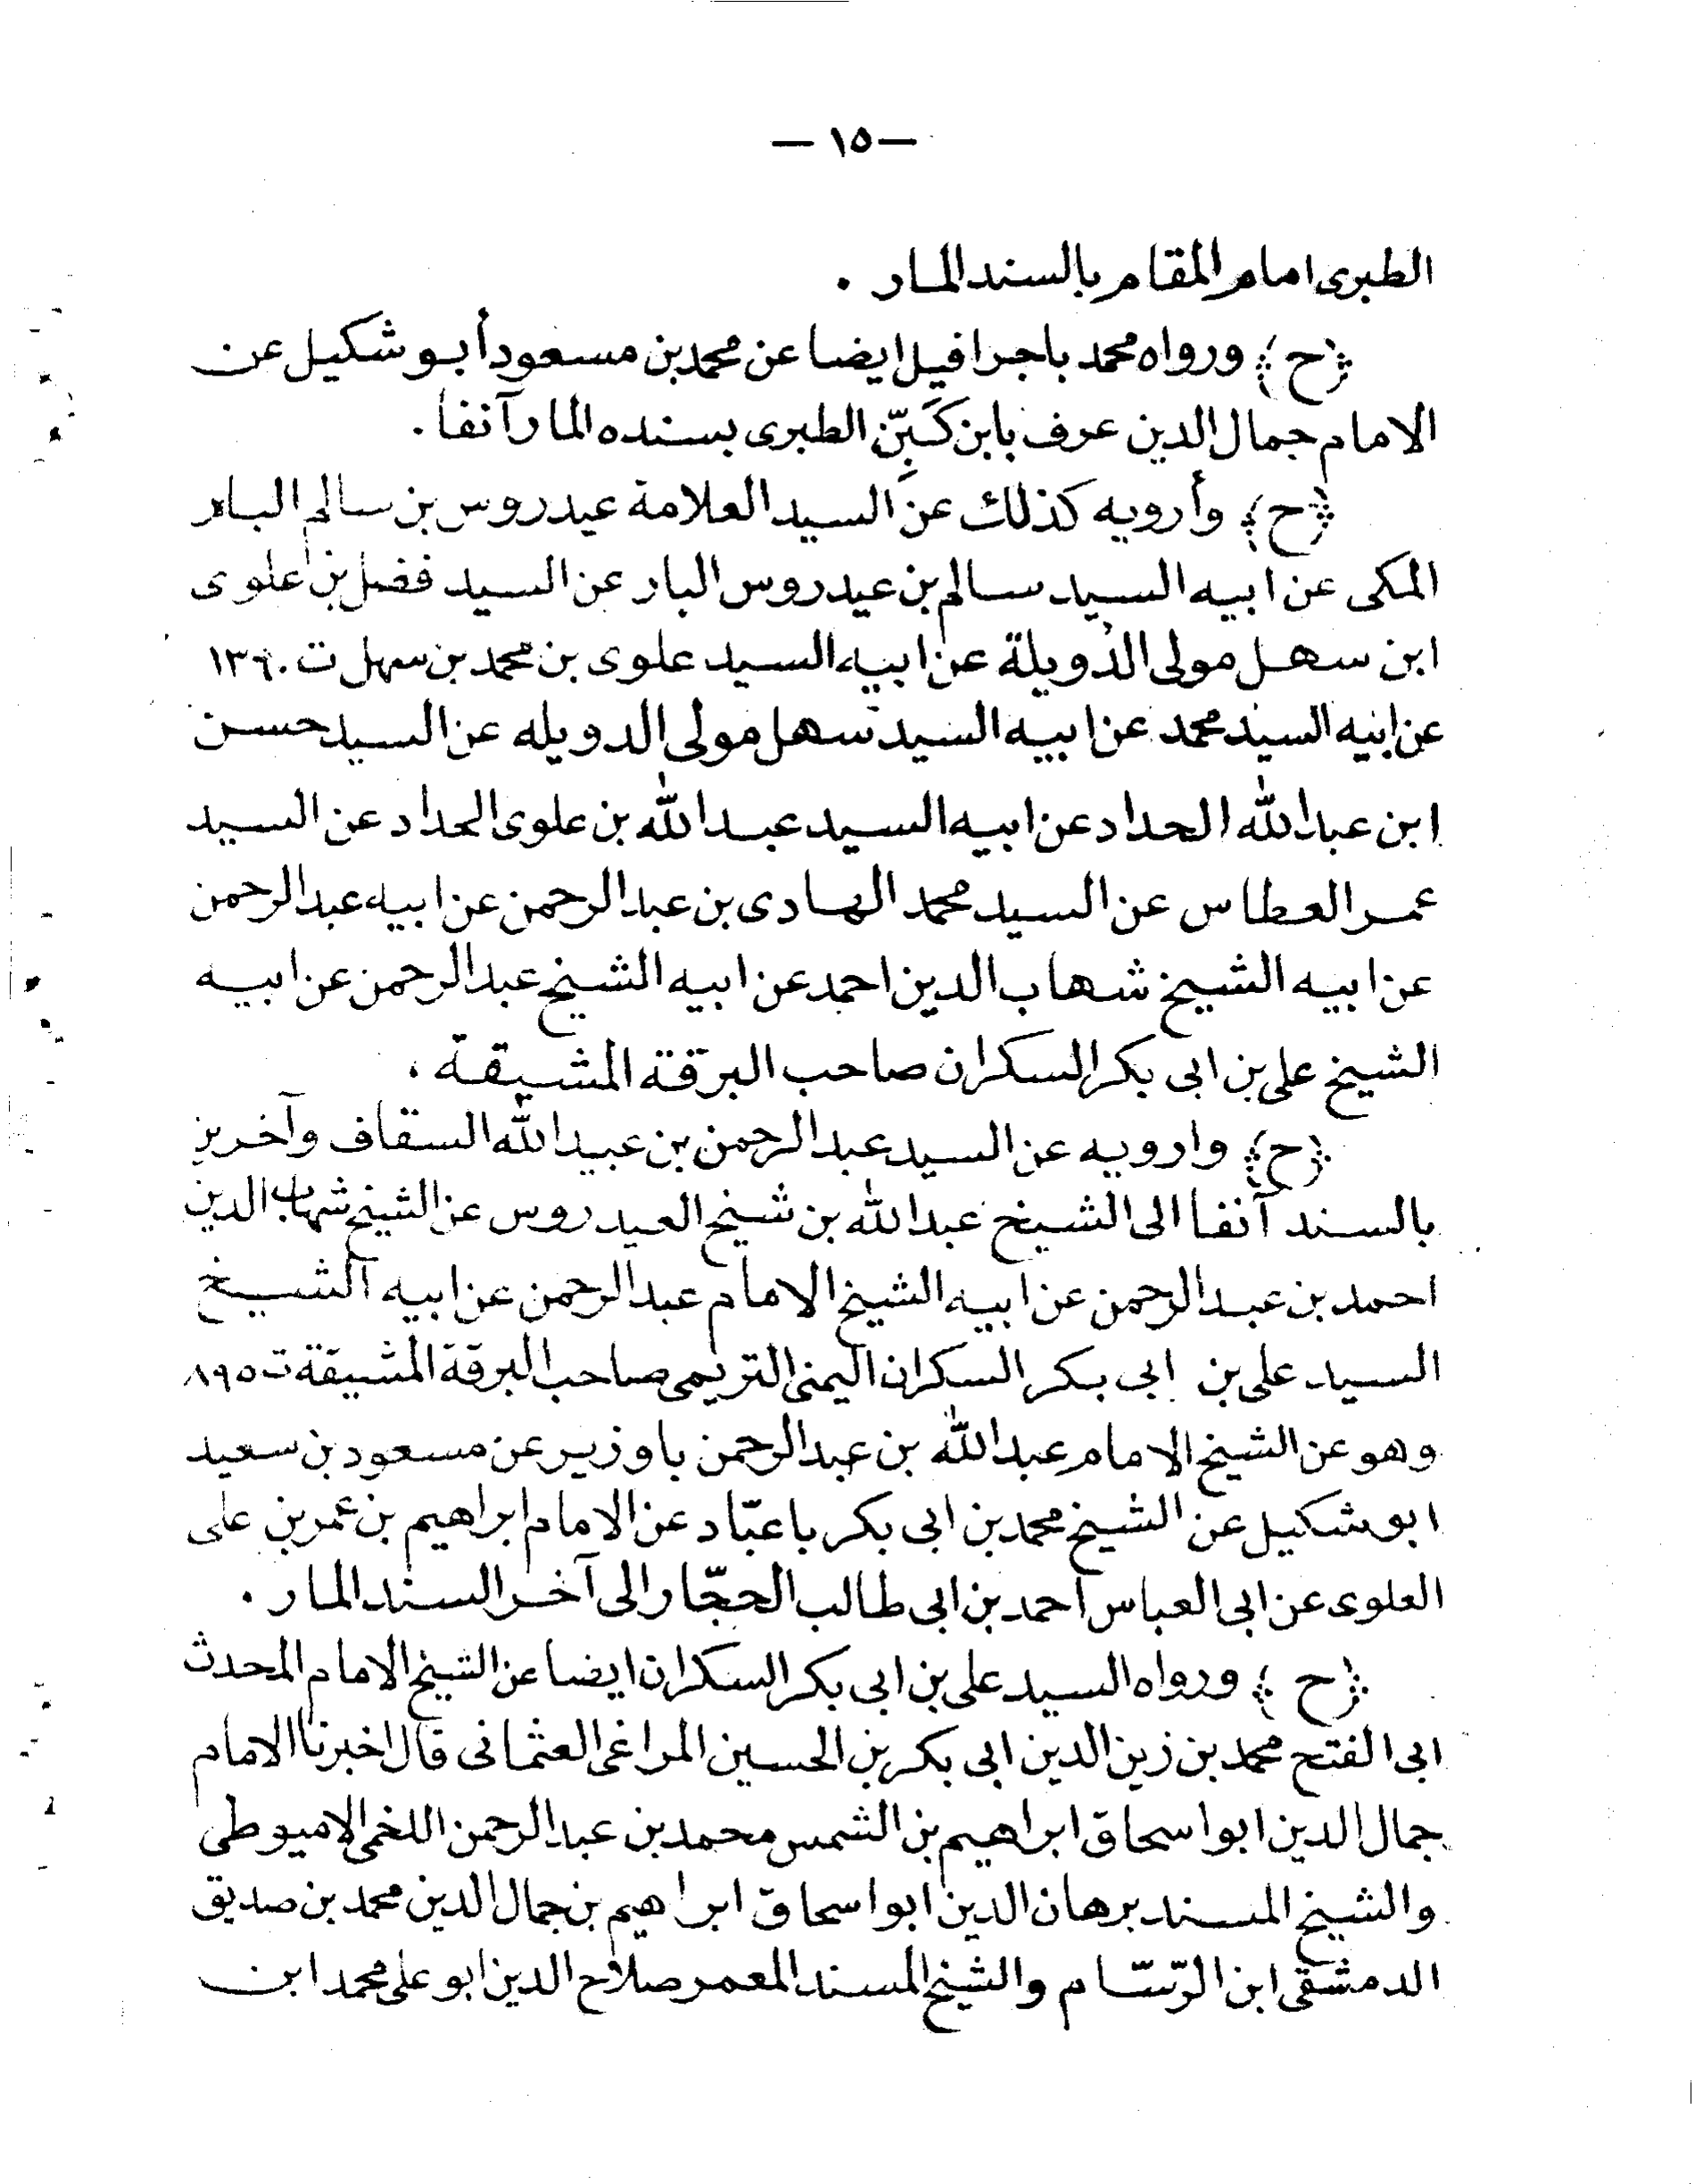 — ١٥ —
الطبرى امام المقام بالسند المار .
﴿ح﴾ ورواه محمد باجرافيل ايضا عن محمد بن مسعود أبو شكيل عن
الامام جمال الدين عرف بابن كَبِّن الطبرى بسنده المار آنفا .
﴿ح﴾ وأرويه كذلك عن السيد العلامة عيدروس بن سالم البار
المكى عن ابيه السيد سالم بن عيدروس البار عن السيد فضل بن علوى
ابن سهل مولى الدويلة عن ابيه السيد علوى بن محمد بن سهل ت ١٢٦٠
عن ابيه السيد محمد عن ابيه السيد سهل مولى الدويله عن السيد حسن
ابن عبد الله الحداد عن ابيه السيد عبد الله بن علوى الحداد عن السيد
عمر العطاس عن السيد محمد الهادى بن عبد الرحمن عن ابيه عبد الرحمن
عن ابيه الشيخ شهاب الدين احمد عن ابيه الشيخ عبد الرحمن عن ابيه
الشيخ على بن ابى بكر السكران صاحب البرقة المشيقة .
﴿ح﴾ وارويه عن السيد عبد الرحمن بن عبيد الله السقاف وآخرين
بالسند آنفا الى الشيخ عبد الله بن شيخ العيدروس عن الشيخ شهاب الدين
احمد بن عبد الرحمن عن ابيه الشيخ الامام عبد الرحمن عن ابيه الشيخ
السيد على بن ابى بكر السكران اليمنى التريمى صاحب البرقة المشيقة ت ٨٩٥
وهو عن الشيخ الامام عبد الله بن عبد الرحمن باوزير عن مسعود بن سعيد
ابو شكيل عن الشيخ محمد بن ابى بكر باعبّاد عن الامام ابراهيم بن عمر بن على
العلوى عن ابى العباس احمد بن ابى طالب الحجّار الى آخر السند المار .
﴿ح﴾ ورواه السيد على بن ابى بكر السكران ايضا عن الشيخ الامام المحدث
ابى الفتح محمد بن زين الدين ابى بكر بن الحسين المراغى العثمانى قال اخبرنا الامام
جمال الدين ابو اسحاق ابراهيم بن الشمس محمد بن عبد الرحمن اللخمى الاميوطى
والشيخ المسند برهان الدين ابو اسحاق ابراهيم بن جمال الدين محمد بن صديق
الدمشقى ابن الرّسّام والشيخ المسند المعمر صلاح الدين ابو على محمد ابن